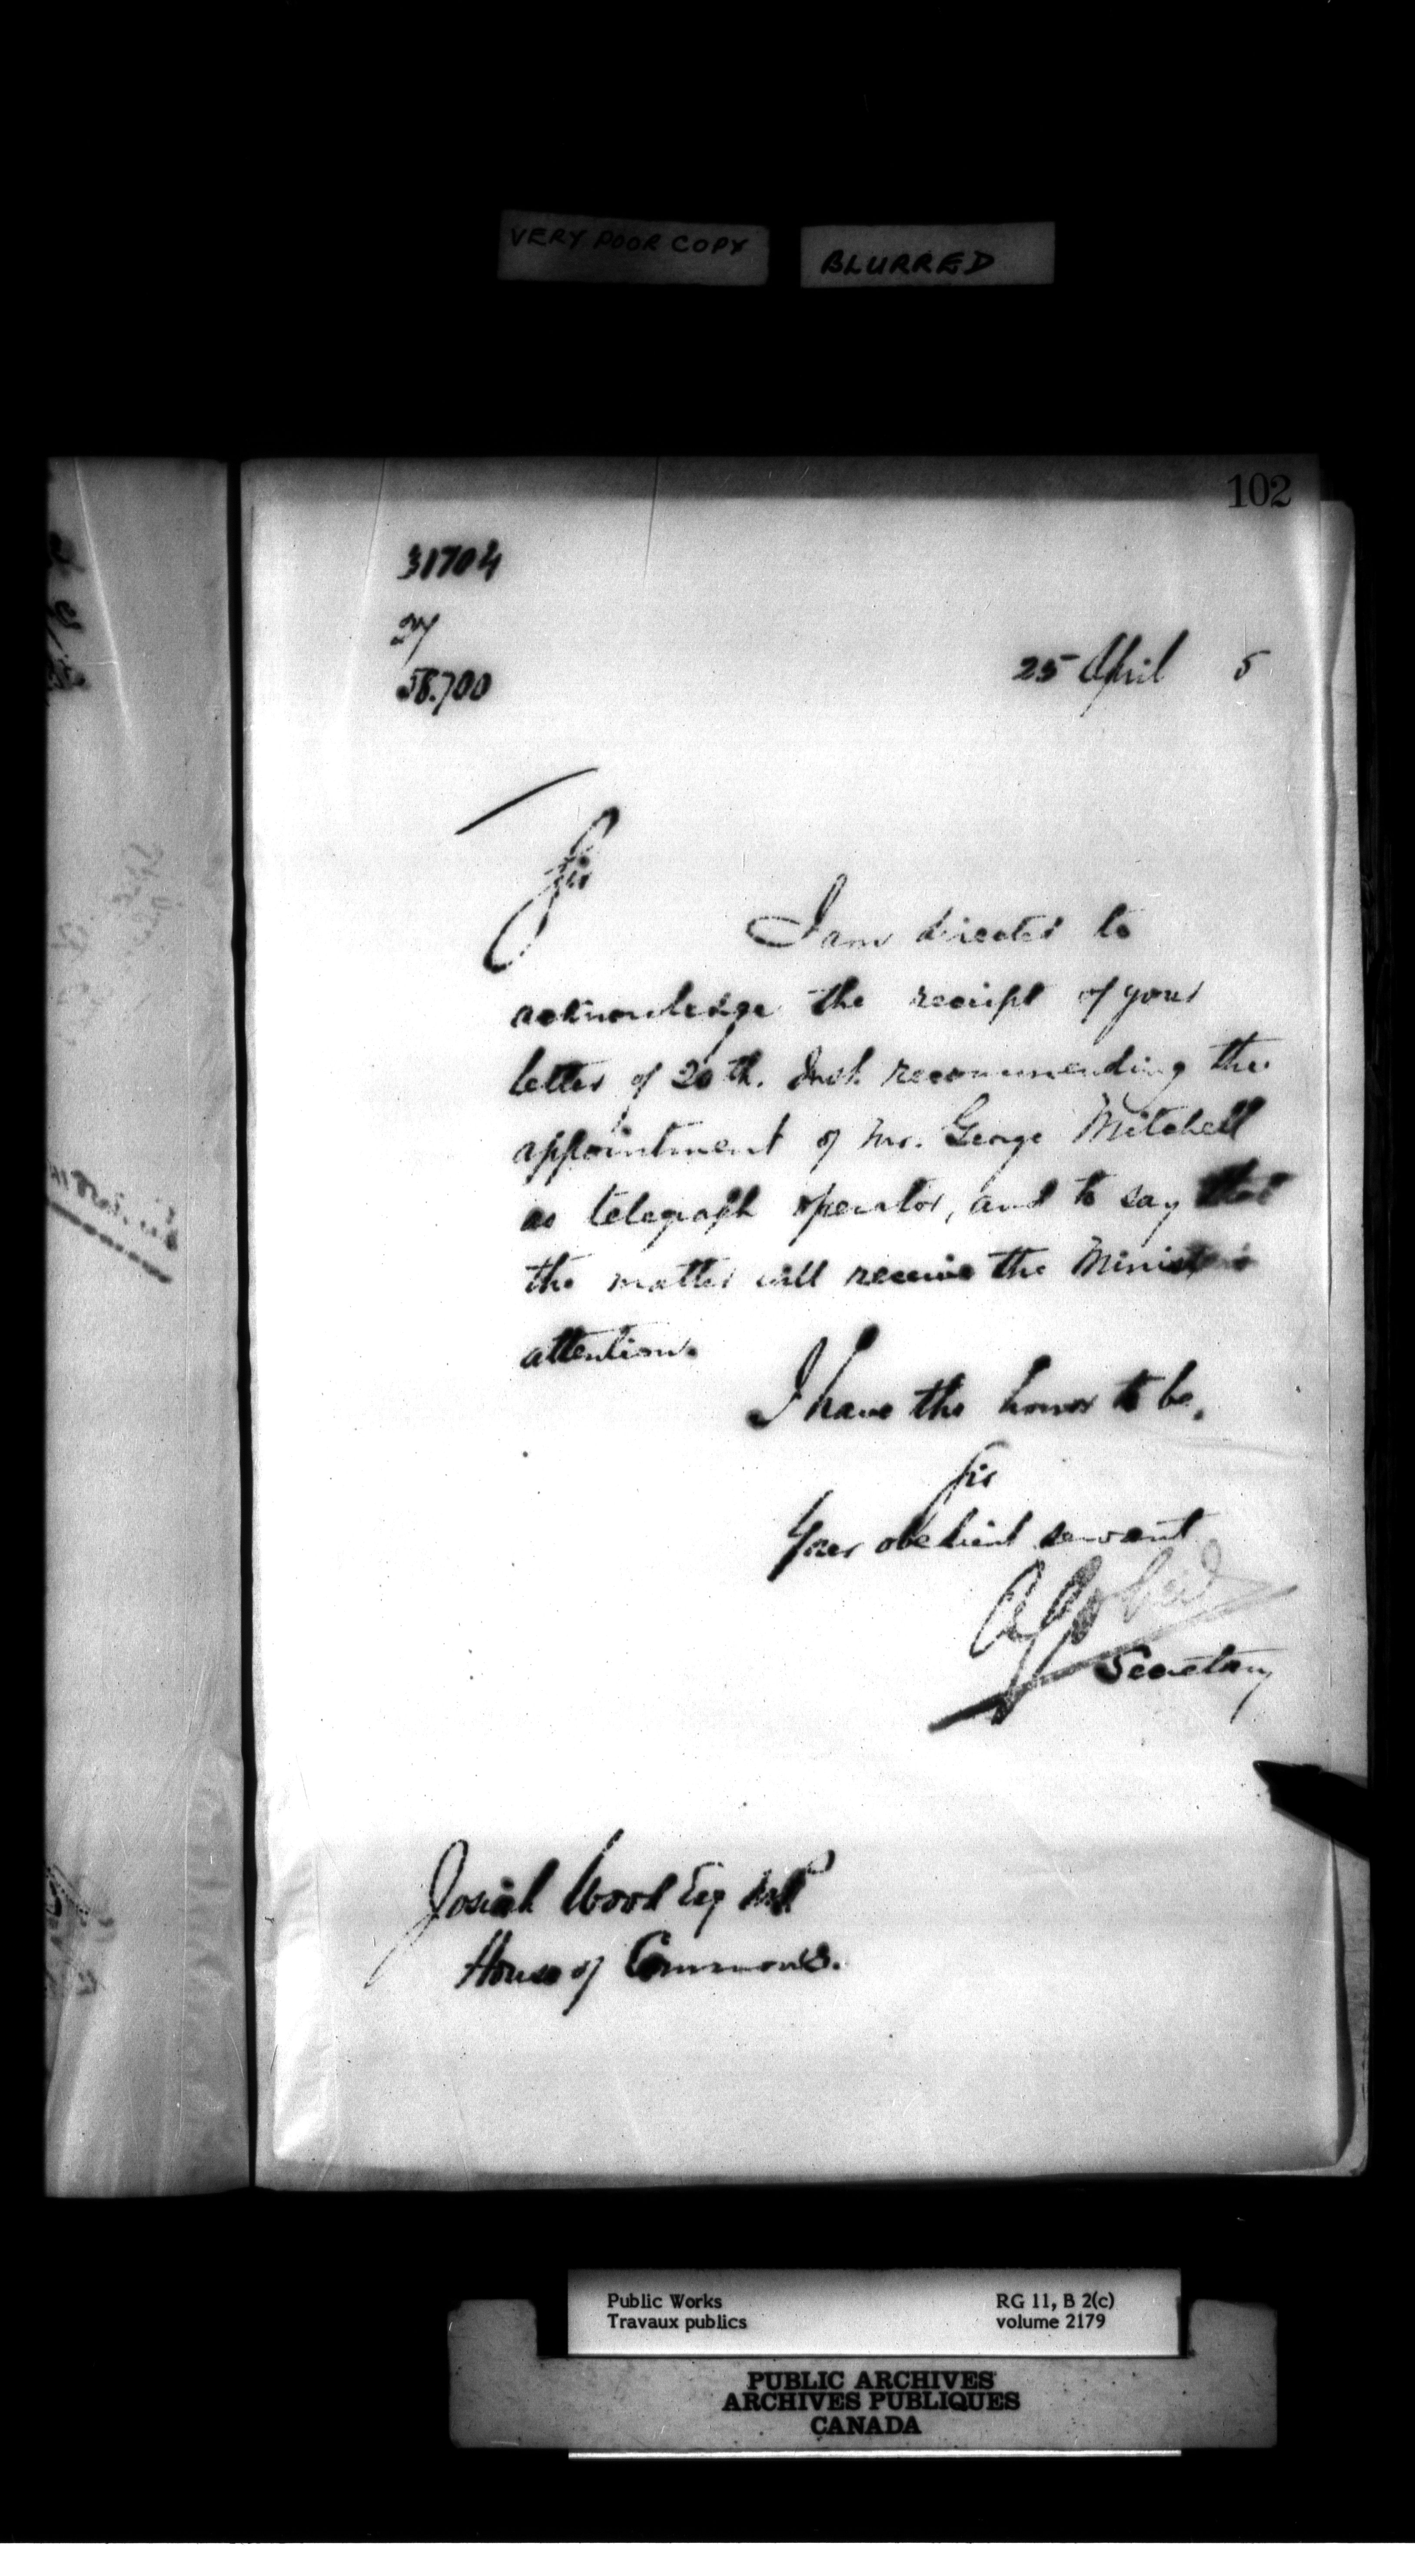 VERY POOR COPY
BLURRED
102
31704
58.700
25 April 5
Sir
I am directed to
acknowledge the receipt of your
letter of 20th. Inst. recommending the
appointment of Mr. George Mitchell
as telegraph operator, and to say that
the matter will receive the Ministers
attention.
I have the honor to be,
Sir
Your obedient servant
A Gobeil
Secretary
Josiah Wood Esq MP
House of Commons.
Public Works
Travaux publics
RG 11, B 2(c)
volume 2179
PUBLIC ARCHIVES
ARCHIVES PUBLIQUES
CANADA